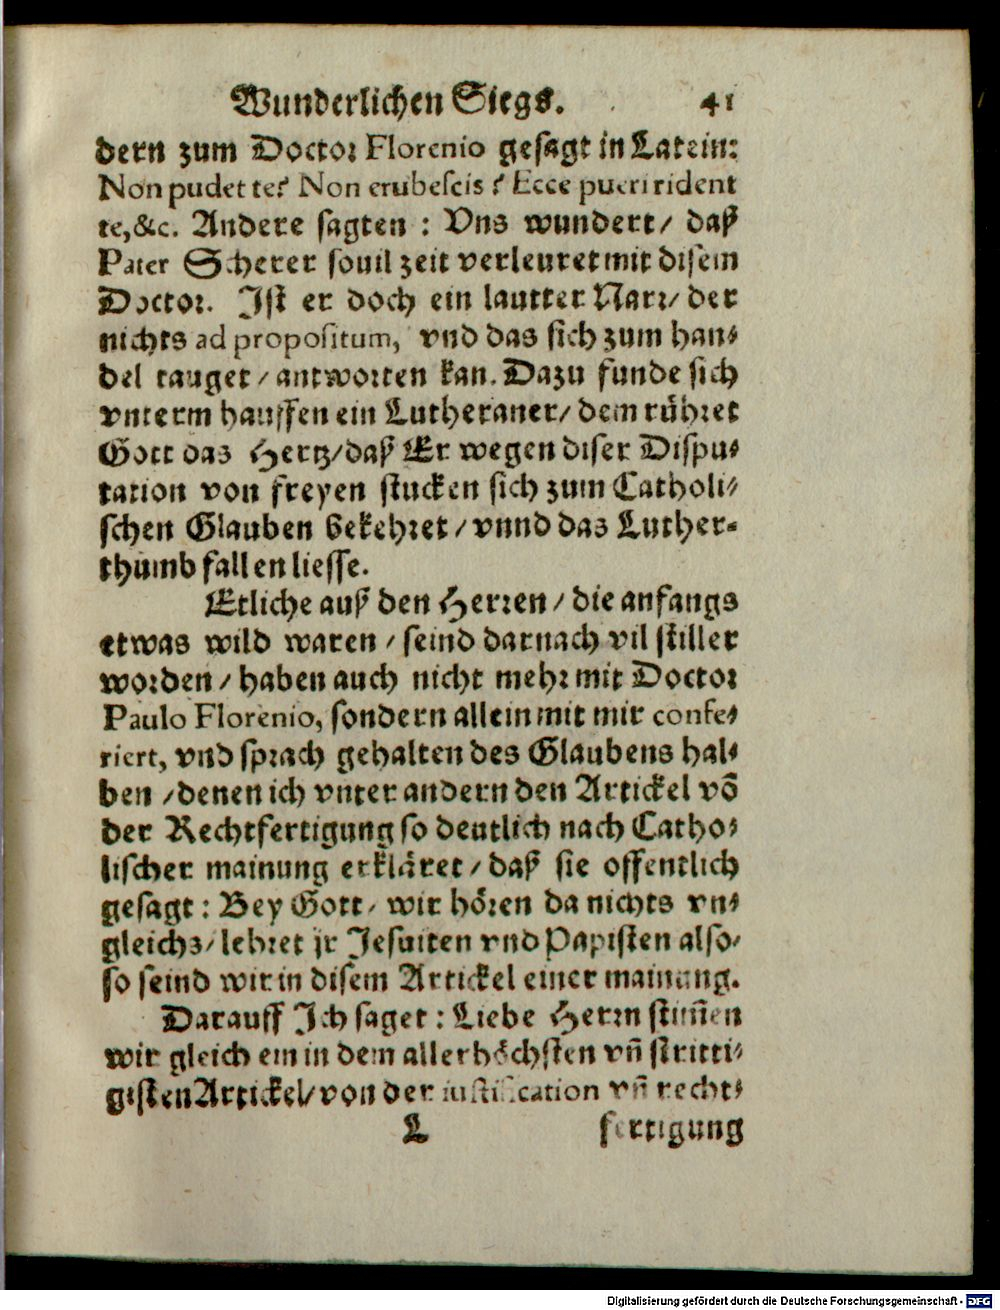 Wunderlichen Siegs. 41
dern zum Doctor Florenio gesagt in Latein:
Non pudet te? Non erubescis? Ecce pueri rident
te,&c. Andere sagten : Vns wundert/ daß
Pater Scherer souil zeit verleuret mit disem
Doctor. Ist er doch ein lautter Narr/ der
nichts ad propositum, vnd das sich zum han-
del tauget/ antworten kan. Dazu funde sich
vnterm hauffen ein Lutheraner/ dem rühret
Gott das Hertz/ daß Er wegen diser Dispu-
tation von freyen stucken sich zum Catholi-
schen Glauben bekehret/ vnnd das Luther-
thumb fallen liesse.
Etliche auß den Herren/ die anfangs
etwas wild waren/ seind darnach vil stiller
worden/ haben auch nicht mehr mit Doctor
Paulo Florenio, sondern allein mit mir confe-
riert, vnd sprach gehalten des Glaubens hal-
ben/ denen ich vnter andern den Artickel võ
der Rechtfertigung so deutlich nach Catho-
lischer mainung erkläret/ daß sie offentlich
gesagt: Bey Gott/ wir hören da nichts vn-
gleichs/ lehret jr Jesuiten vnd Papisten also/
so seind wir in disem Artickel einer mainung.
Darauff Ich saget: Liebe Herrn stim̃en
wir gleich ein in dem allerhöchsten vñ stritti-
gisten Artickel/ von der iustification vñ recht-
L fertigung
Digitalisierung gefördert durch die Deutsche Forschungsgemeinschaft - DFG